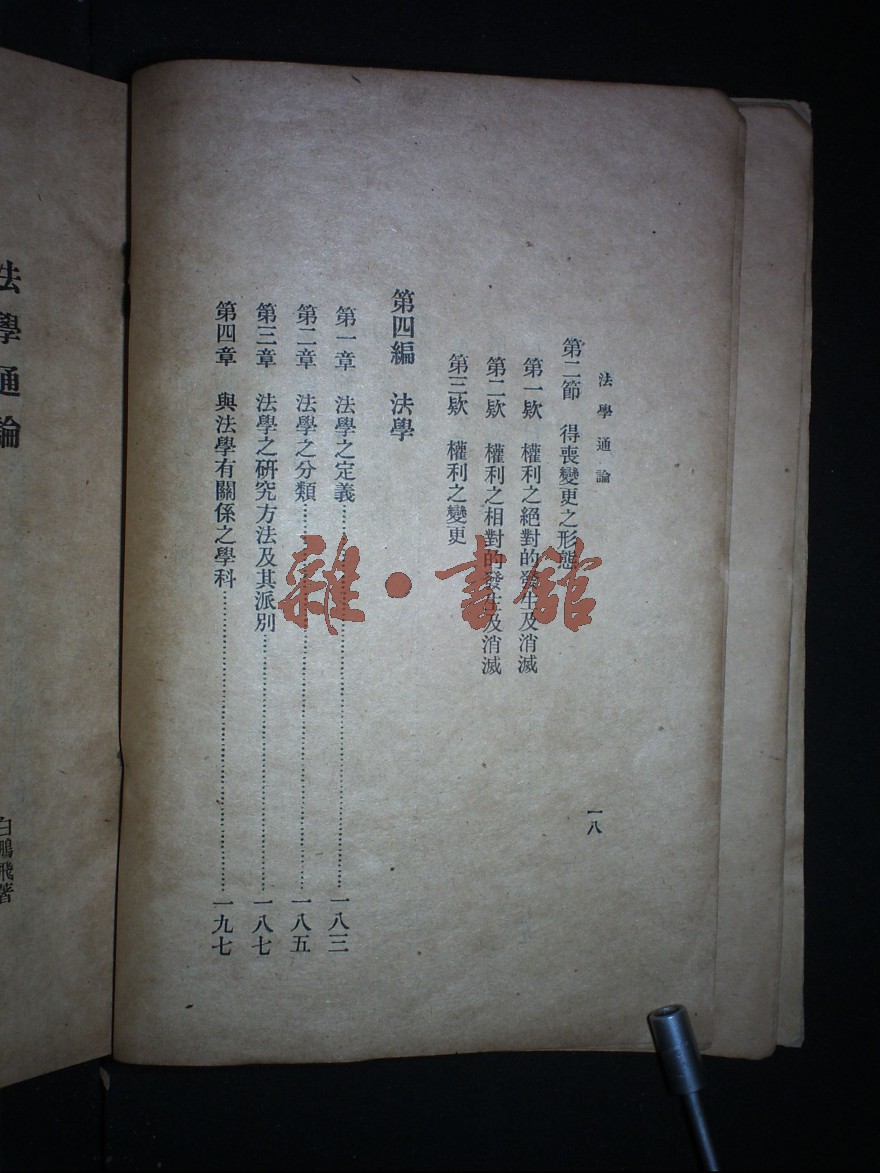 法學通論
一八
第二節　得喪變更之形態
第一欵　權利之絕對的發生及消滅
第二欵　權利之相對的發生及消滅
第三欵　權利之變更
第四編　法學
第一章　法學之定義……一八三
第二章　法學之分類……一八五
第三章　法學之研究方法及其派別……一八七
第四章　與法學有關係之學科……一九七
法學通論
白鵬飛著
雜·書館